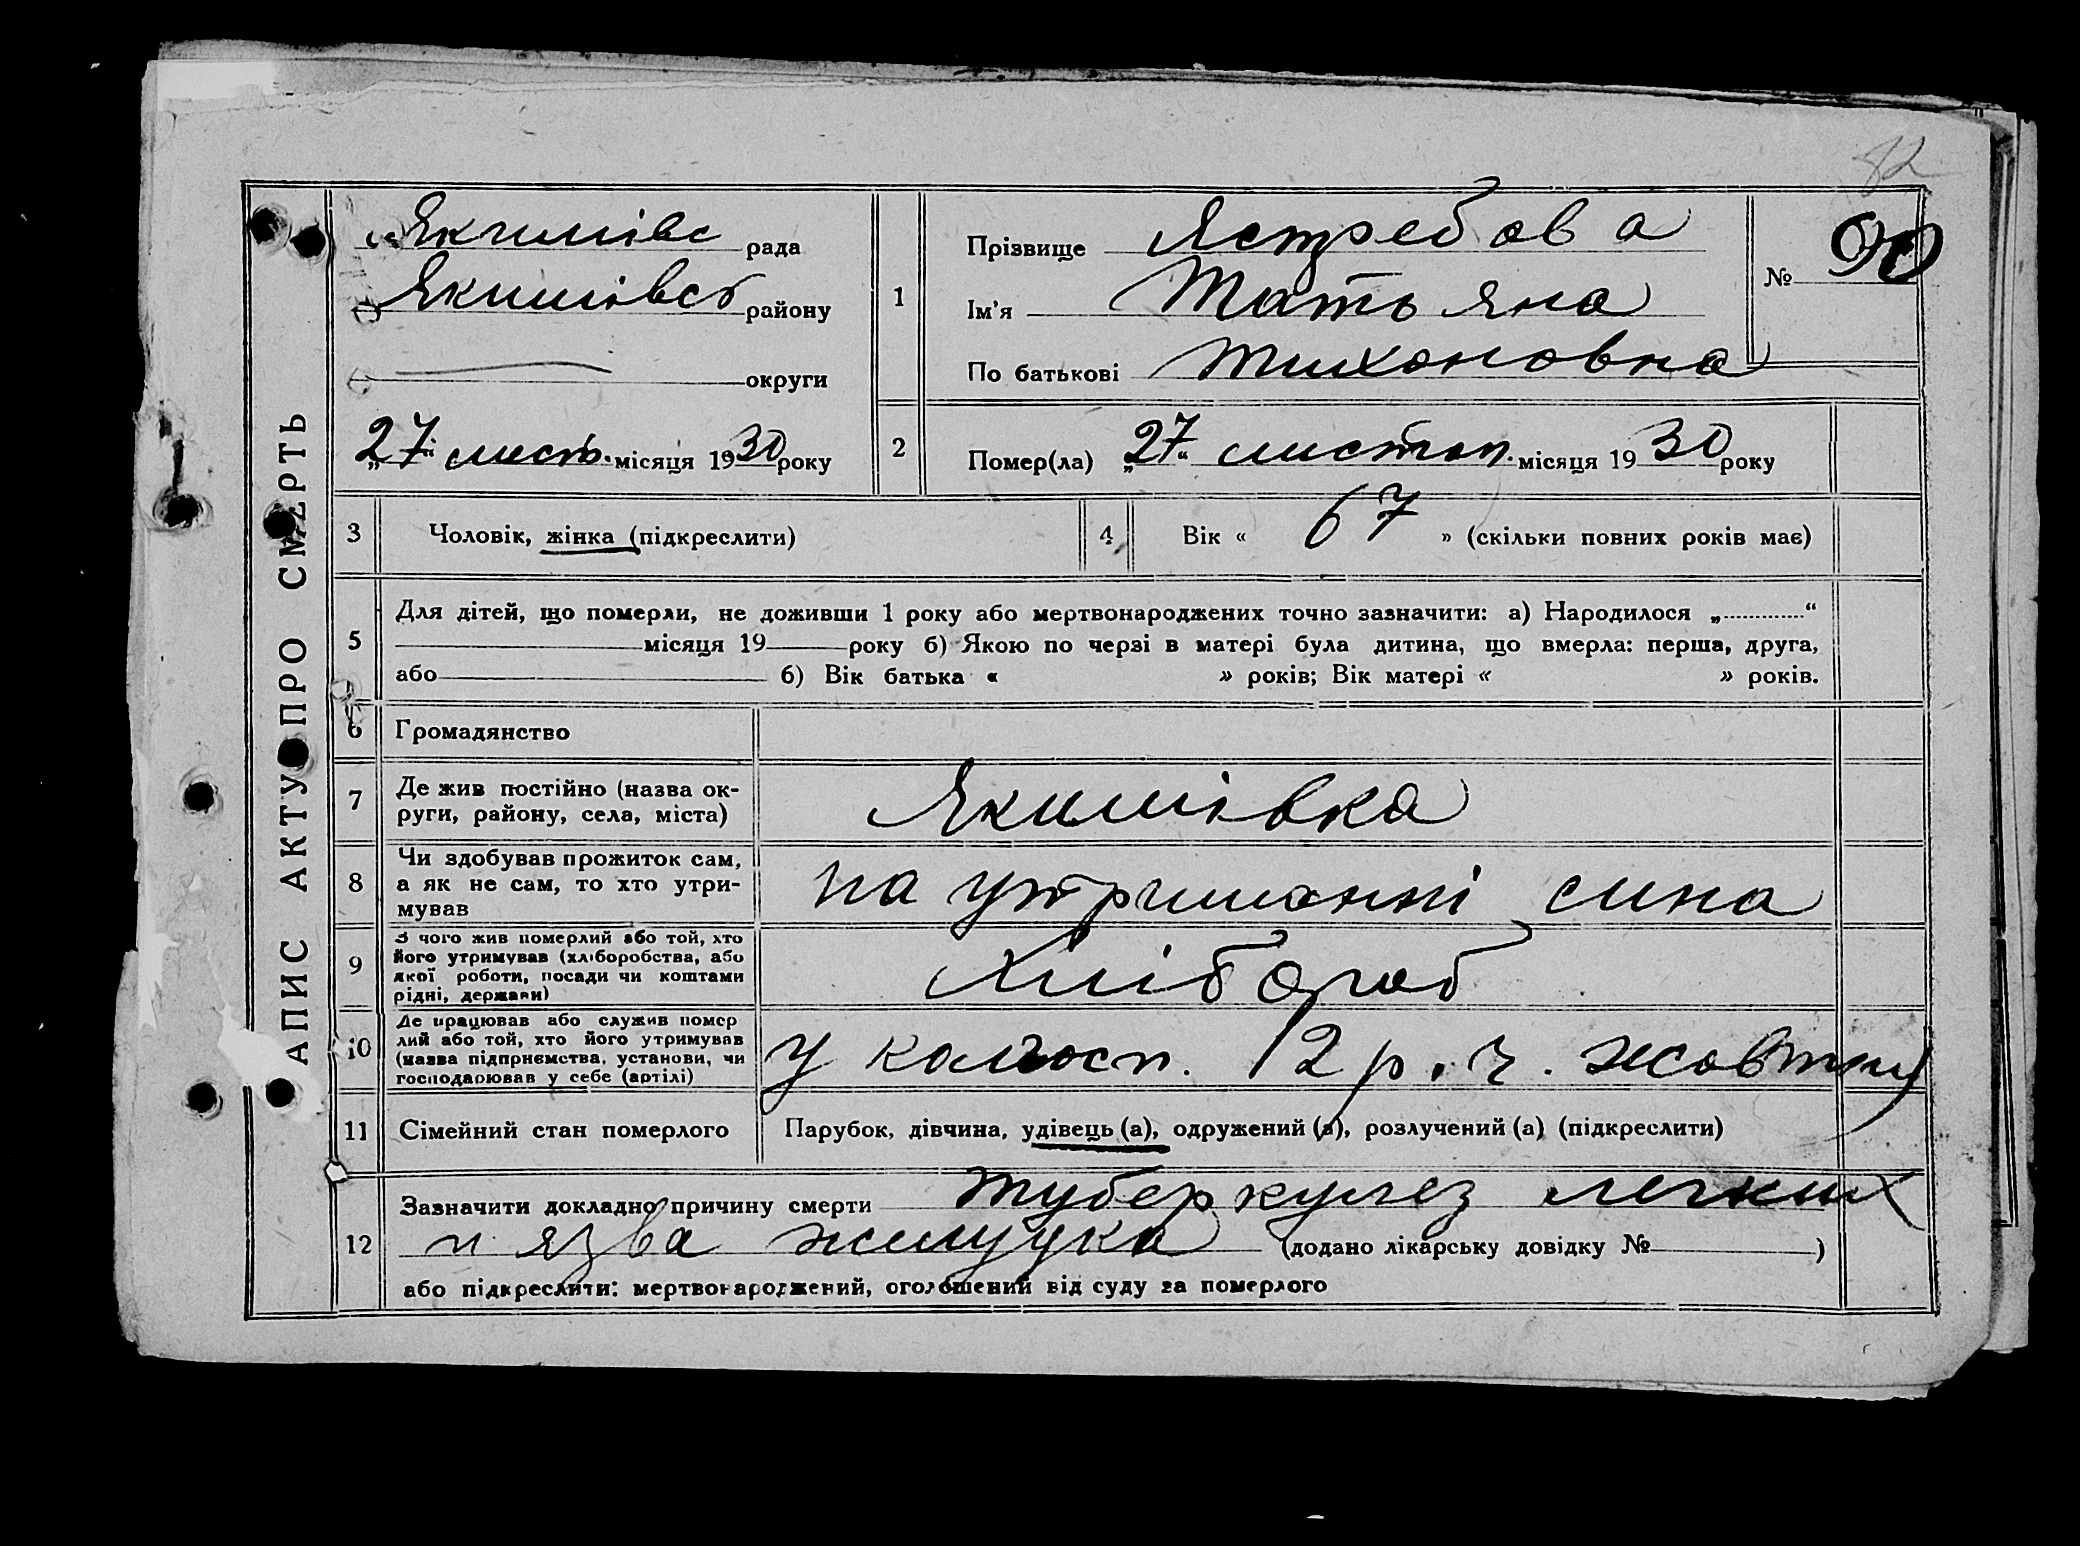 82
АПИС АКТУ ПРО СМЕРТЬ
Якимівс рада
Якимівсь району
округи
„27“ лист. місяця 1930 року
1
Прізвище Ястребова
Ім'я Татьяна
По батькові Тихоновна
№ 90
2
Помер(ла) „27“ листоп. місяця 1930 року
3 Чоловік, жінка (підкреслити)
4 Вік « 67 » (скільки повних років має)
5
Для дітей, що померли, не доживши 1 року або мертвонароджених точно зазначити: а) Народилося „ “
місяця 19 року б) Якою по черзі в матері була дитина, що вмерла: перша, друга,
або б) Вік батька « » років; Вік матері « » років.
6 Громадянство
7
Де жив постійно (назва ок-
руги, району, села, міста)
Якимівка
8
Чи здобував прожиток сам,
а як не сам, то хто утри-
мував
на утриманні сина
9
З чого жив померлий або той, хто
його утримував (хліборобства, або
якої роботи, посади чи коштами
рідні, держави)
Хлібороб
10
Де працював або служив помер
лий або той, хто його утримував
(назва підприємства, установи, чи
господарював у себе (артілі)
у колгосп. 12 р. ч. жовтня
11 Сімейний стан померлого
Парубок, дівчина, удівець (а), одружений (а), розлучений (а) (підкреслити)
12
Зазначити докладно причину смерти туберкулез легких
и язва желудка (додано лікарську довідку № )
або підкреслити: мертвонароджений, оголошений від суду за померлого